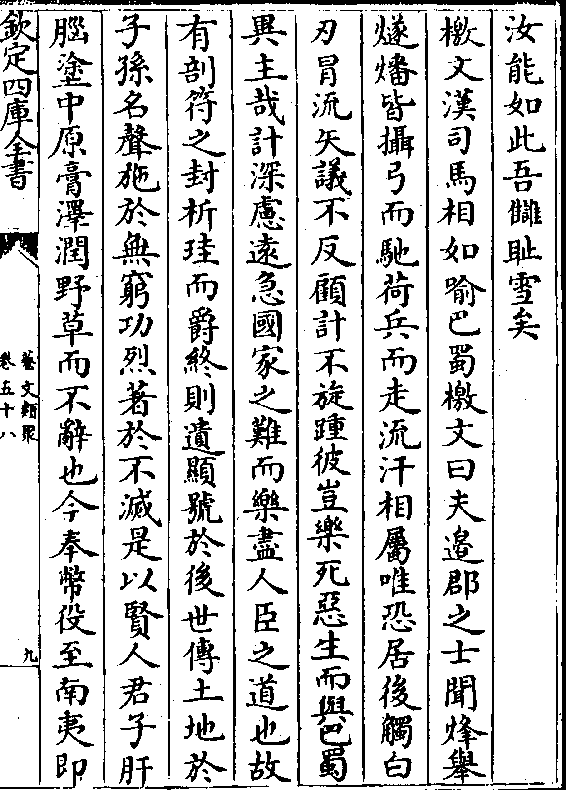 汝能如此吾讎耻雪矣
檄文漢司馬相如喻巴蜀檄文曰夫邉郡之士聞烽舉
燧燔皆攝弓而馳荷兵而走流汗相屬唯恐居後觸白
刃冒流矢議不反顧計不旋踵彼豈樂死惡生而與巴蜀
異主哉計深慮遠急國家之難而樂盡人臣之道也故
有剖符之封析珪而爵終則遺顯號於後世傳土地於
子孫名聲施於無窮功烈著於不滅是以賢人君子肝
腦塗中原膏澤潤野草而不辭也今奉幣役至南夷即
欽定四庫全書
藝文類聚
卷五十八
九